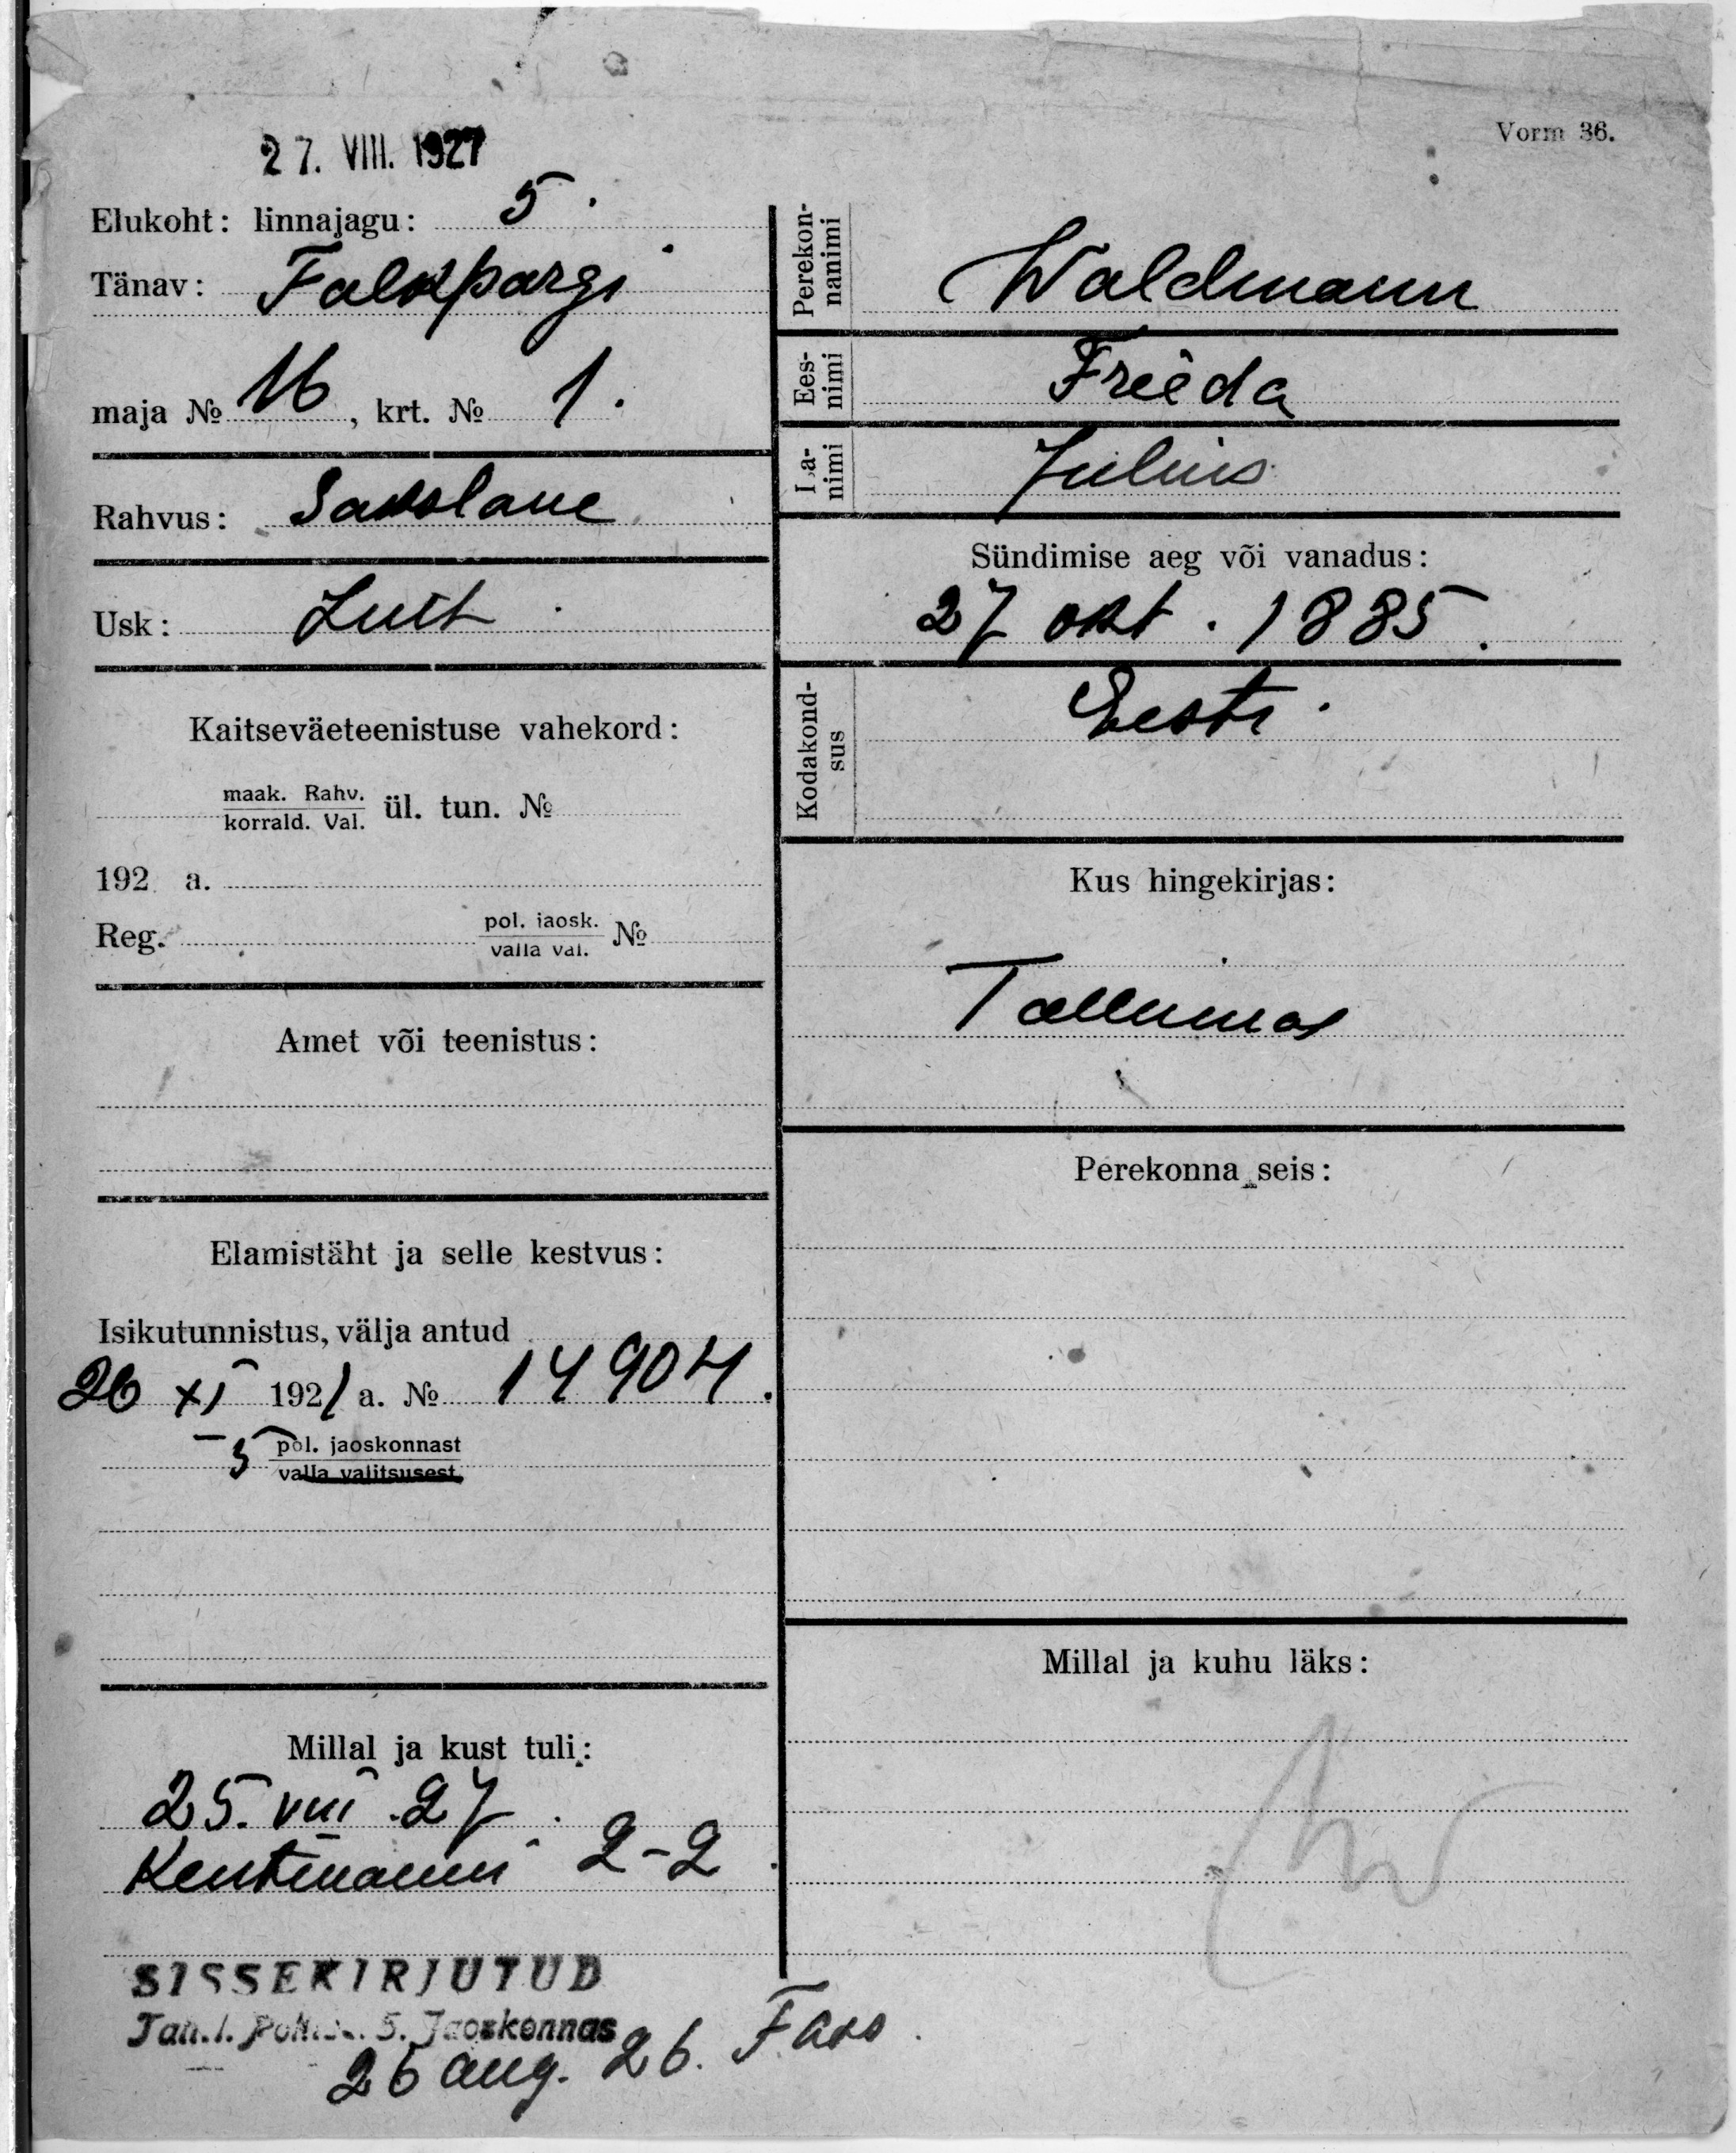 27. VIII. 1927
Vorm 36.
Elukoht: linnajagu: 5.
Tänav: Falkpargi
maja № 16, krt. № 1.
Rahvus: Sakslane
Usk: Lut
Kaitseväeteenistuse vahekord:
maak. Rahv.
korrald. Val. ül. tun. №
192 a.
Reg. pol. jaosk.
valla val. №
Amet või teenistus:
Elamistäht ja selle kestvus:
Isikutunnistus, välja antud
26 XI 1921 a. № 14904.
5 pol. jaoskonnast
valla valitsusest
Millal ja kust tuli:
25. VIII 27.
Kentmanni 2-2.
SISSEKIRJUTUD
Tall. Polits. 5. Jaoskonnas
26 aug. 26.
Perekon-
nanimi Waldmann
Ees-
nimi Frieda
Isa-
nimi Julius
Sündimise aeg või vanadus:
27 okt. 1885.
Kodakond-
sus Eesti.
Kus hingekirjas:
Tallinnas
Perekonna seis:
Millal ja kuhu läks: